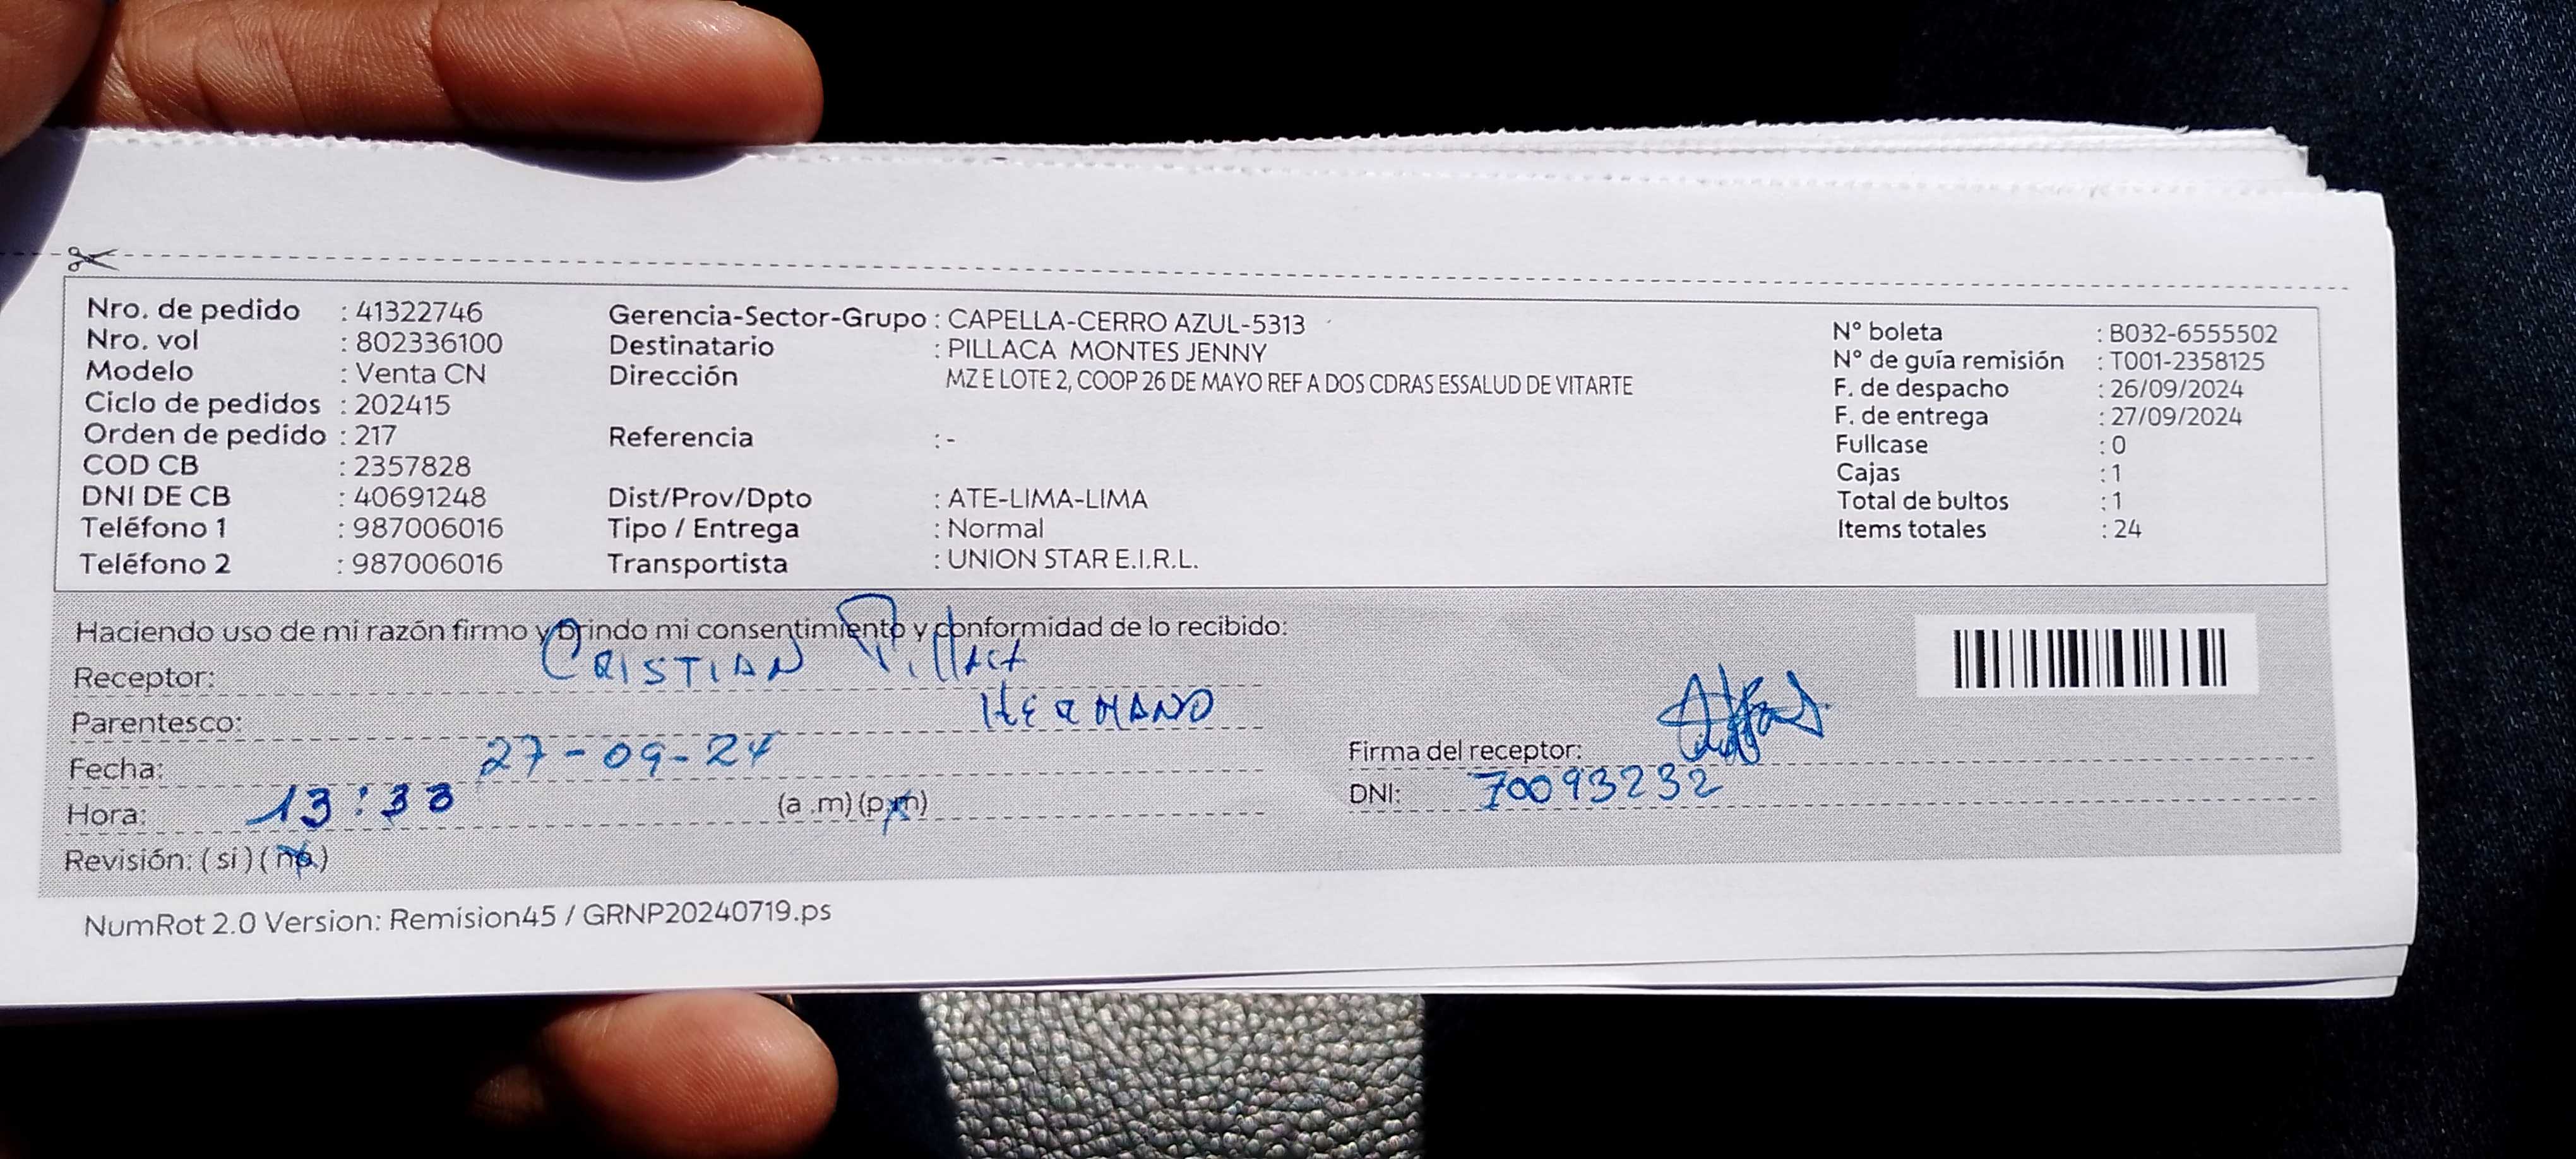 Nro. de pedido : 41322746
Nro. vol : 802336100
Modelo : Venta CN
Ciclo de pedidos : 202415
Orden de pedido : 217
COD CB : 2357828
DNI DE CB : 40691248
Teléfono 1 : 987006016
Teléfono 2 : 987006016
Gerencia-Sector-Grupo : CAPELLA-CERRO AZUL-5313
Destinatario : PILLACA MONTES JENNY
Dirección MZ E LOTE 2, COOP 26 DE MAYO REF A DOS CDRAS ESSALUD DE VITARTE
Referencia : -
Dist/Prov/Dpto : ATE-LIMA-LIMA
Tipo / Entrega : Normal
Transportista : UNION STAR E.I.R.L.
N° boleta : B032-6555502
N° de guía remisión : T001-2358125
F. de despacho : 26/09/2024
F. de entrega : 27/09/2024
Fullcase : 0
Cajas : 1
Total de bultos : 1
Items totales : 24
Haciendo uso de mi razón firmo y brindo mi consentimiento y conformidad de lo recibido:
Receptor: CRISTIAN Pillaca
Parentesco: HERMANO
Fecha: 27-09-24
Hora: 13:33 (a .m) (p.m)
Revisión: ( si ) ( no )
Firma del receptor:
DNI: 70093232
NumRot 2.0 Version: Remision45 / GRNP20240719.ps